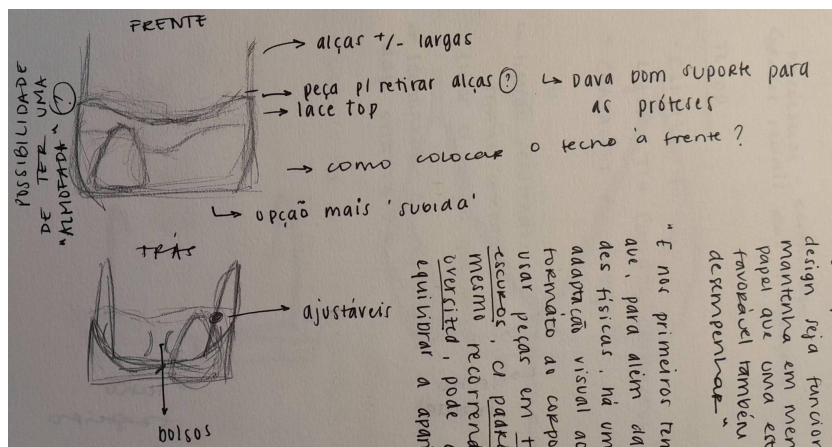 FRENTE
→ alças +/- largas
→ peça p/ retirar alças ? ↳ Dava bom suporte para
as próteses
→ lace top
→ como colocar o tecno à frente?
↳ opção mais 'subida'
POSSIBILIDADE
DE TER UMA ?
"ALMOFADA"
TRÁS
→ ajustáveis
bolsos
design seja funcion
mantenha em men
papel que uma est
favorável também
desempenhar"
"E nos primeiros tem
que, para além da
des físicas, há um
adaptação visual ao
formato do corpo
usar peças em t
escuros, c/ padrõ
mesmo recorrend
oversized, pode
equilibrar a apar